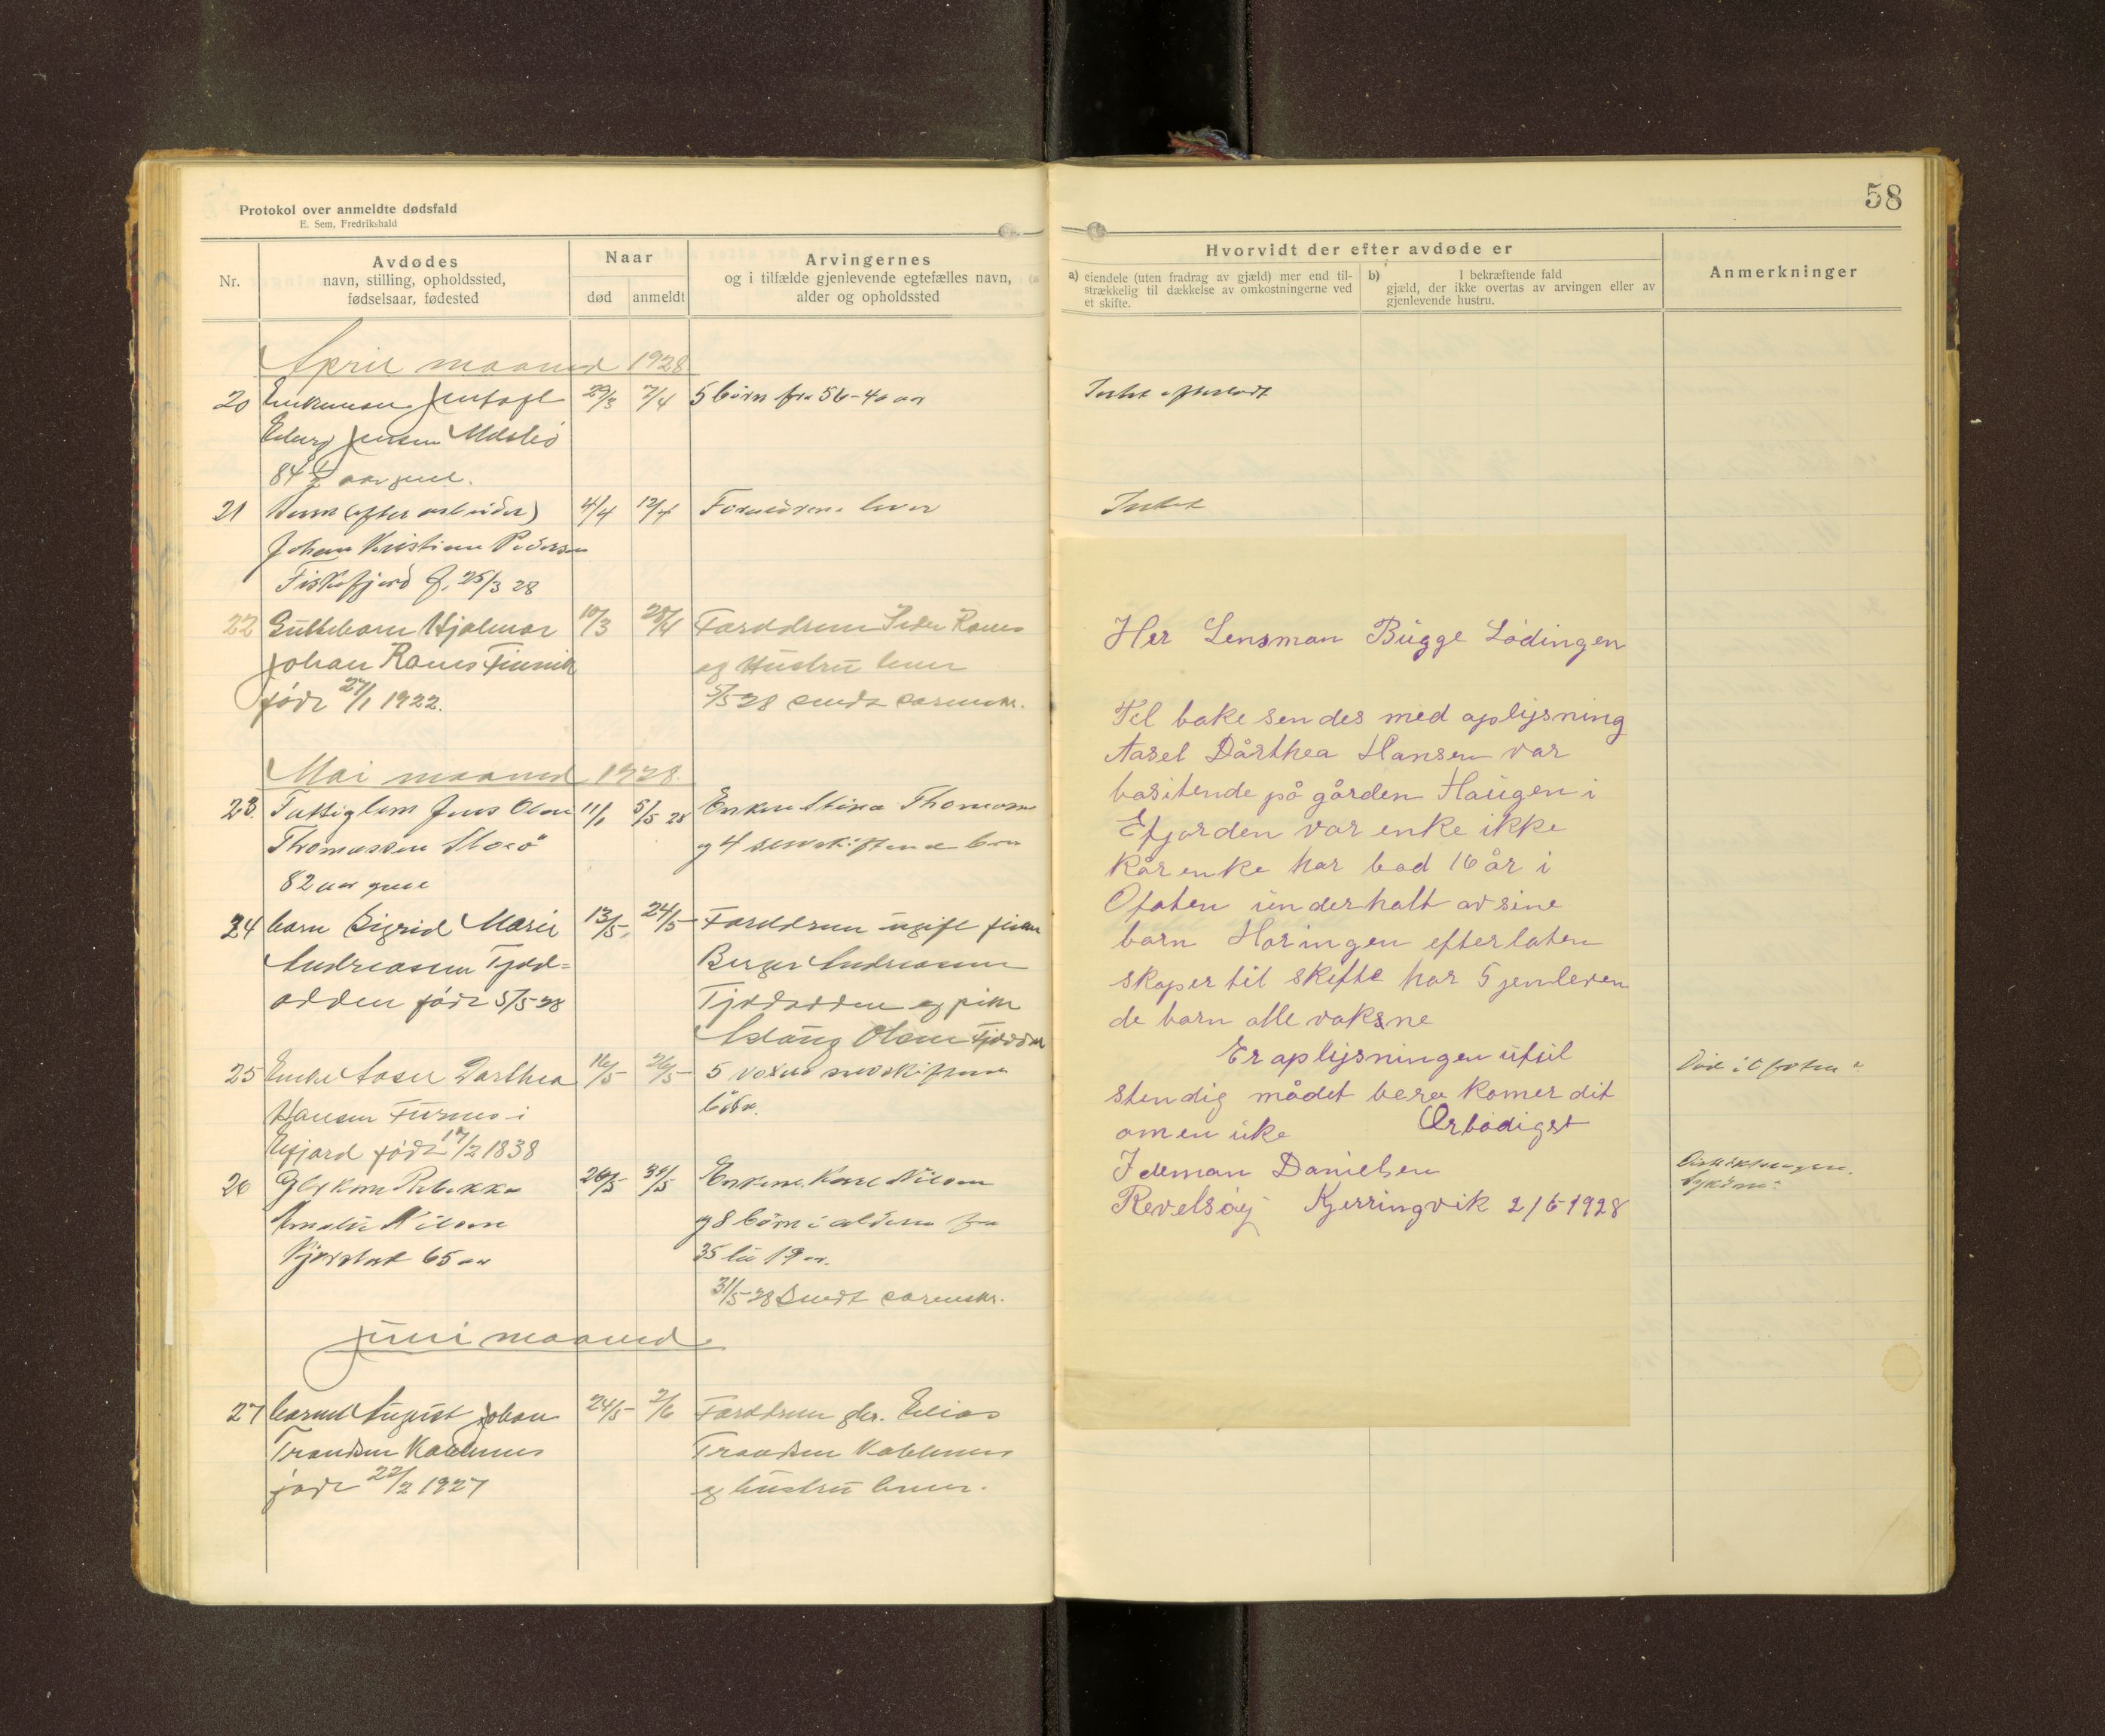 Protokol over anmeldte dødsfald
E. Sem, Fredrikshald
Nr.
Avdødes
navn, stilling, opholdssted,
fødselsaar, fødested
Naar
død
anmeldt
Arvingernes
og i tilfælde gjenlevende egtefælles navn,
alder og opholdssted
April maaned 1928
20 29/3 7/4 5 børn fra 56-40 aar
Jensen
84 1/2 aar gml.
21 4/4 12/4 Forældrene lever
Johan Kristian Pedersen
Fiskefjord f. 25/3 28
22 Guttebarn Hjalmar 10/3 28/4 Forældrene Peder Ranes
Johan Ranes
og Hustru lever
født 27/1 1922.
5/5 28 sendt
Mai maaned 1928.
23. Fattiglem Jens Olai 11/1 5/5 28 Enken Stina Thomassen
Thomassen
og 4 selvskiftende børn
82 aar gml
24 barn Sigrid Marie 13/5 24/5 Forældrene ugift
Andreassen Tjeld=
Berger Andreassen
odden født 5/5 28
Tjeldodden og pike
Aslaug Olsen
25 Enke Aasel Darthea 16/5 26/5 5 voksne selvskiftende
Hansen Furnes i
børn.
Efjord født 17/2 1838
26 Rebekka 26/5 31/5 Enkem. Karl Nilsen
Amalie Nilsen
og 8 børn i alderen fra
Kjerstad 65 aar
35 til 19 aar.
31/5 28 Sendt
Juni maaned
27 barnet August Johan 24/5 2/6 Forældrene gbr. Elias
født 22/2 1927
og hustru lever.
58
Hvorvidt der efter avdøde er
a) eiendele (uten fradrag av gjæld) mer end til-
strækkelig til dækkelse av omkostningerne ved
et skifte.
b) I bekræftende fald
gjæld, der ikke overtas av arvingen eller av
gjenlevende hustru.
Anmerkninger
Intet efterladt
Intet
Her Lensman Bugge Lødingen
Til bake sendes med oplysning
Aasel Dårthea Hansen var
bositende på gården Haugen i
Efjorden var enke ikke
kårenke har bod 16 år i
Ofoten underholt av sine
barn Haringen efterlaten
skaper til skifte har 5 jenleven
de barn alle voksne
Er oplysningen uful
stendig mådet bera komer dit
om en uke Ærbødigst
Ideman Danielsen
Revelsøy Kjerringvik 2/6-1928